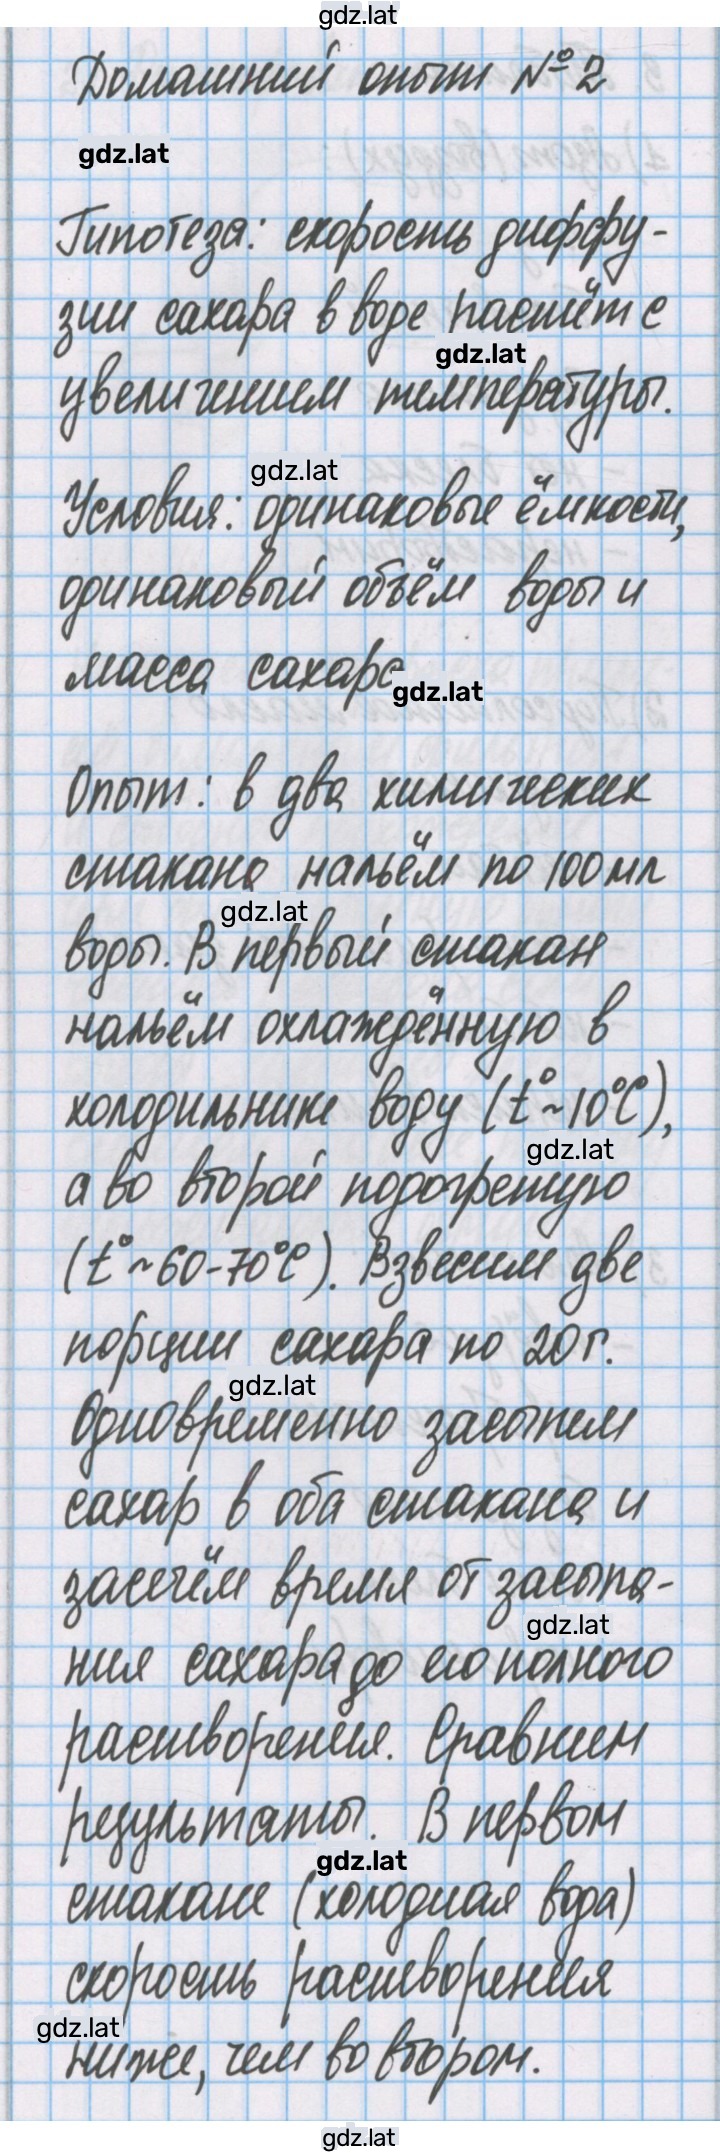 gdz.lat
Домашний опыт №2
gdz.lat
Гипотеза: скорость диффу-
зии сахара в воде растёт с
gdz.lat
увеличением температуры.
gdz.lat
Условия: одинаковые ёмкости,
одинаковый объём воды и
масса сахара
gdz.lat
Опыт: в два химических
стакана нальём по 100 мл
gdz.lat
воды. В первый стакан
нальём охлаждённую в
холодильнике воду (t°~10°C),
gdz.lat
а во второй подогретую
(t°~60-70°C). Взвесим две
порции сахара по 20г.
gdz.lat
Одновременно засыпем
сахар в оба стакана и
засечём время от засыпа-
gdz.lat
ния сахара до его полного
растворения. Сравним
результаты. В первом
gdz.lat
стакане (холодная вода)
скорость растворения
gdz.lat
ниже, чем во втором.
gdz.lat